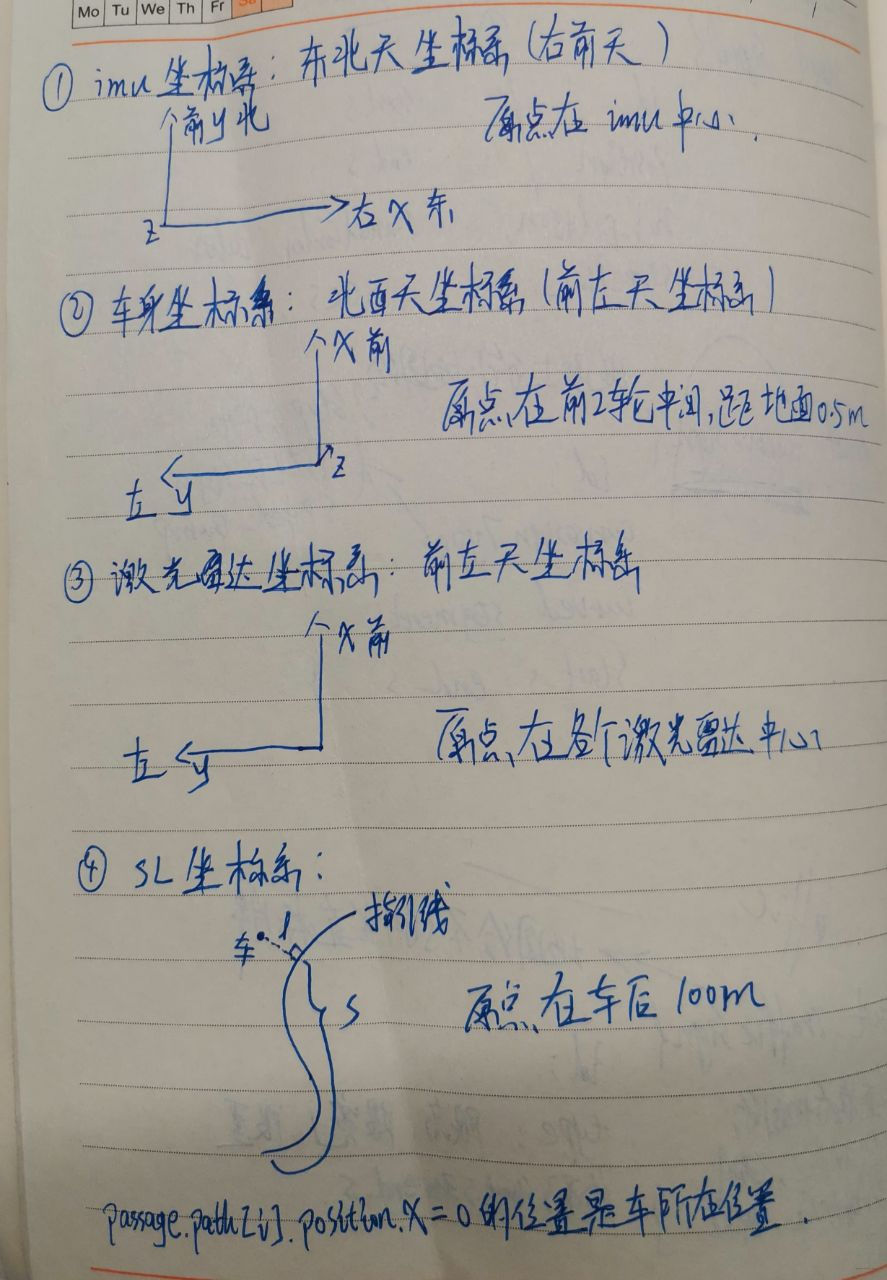 Mo Tu We Th Fr Sa
① imu 坐标系：东北天坐标系（右前天）
前 y 北
原点在 imu 中心.
z
右 X 东
② 车身坐标系：北西天坐标系（前左天坐标系）
X 前
原点在前2轮中间,距地面0.5m
左 y
z
③ 激光雷达坐标系：前左天坐标系
X 前
原点在各个激光雷达中心
左 y
④ SL 坐标系：
指引线
车 l
原点在车后 100m
S
passage.path[i].position.X=0 的位置是车所在位置.